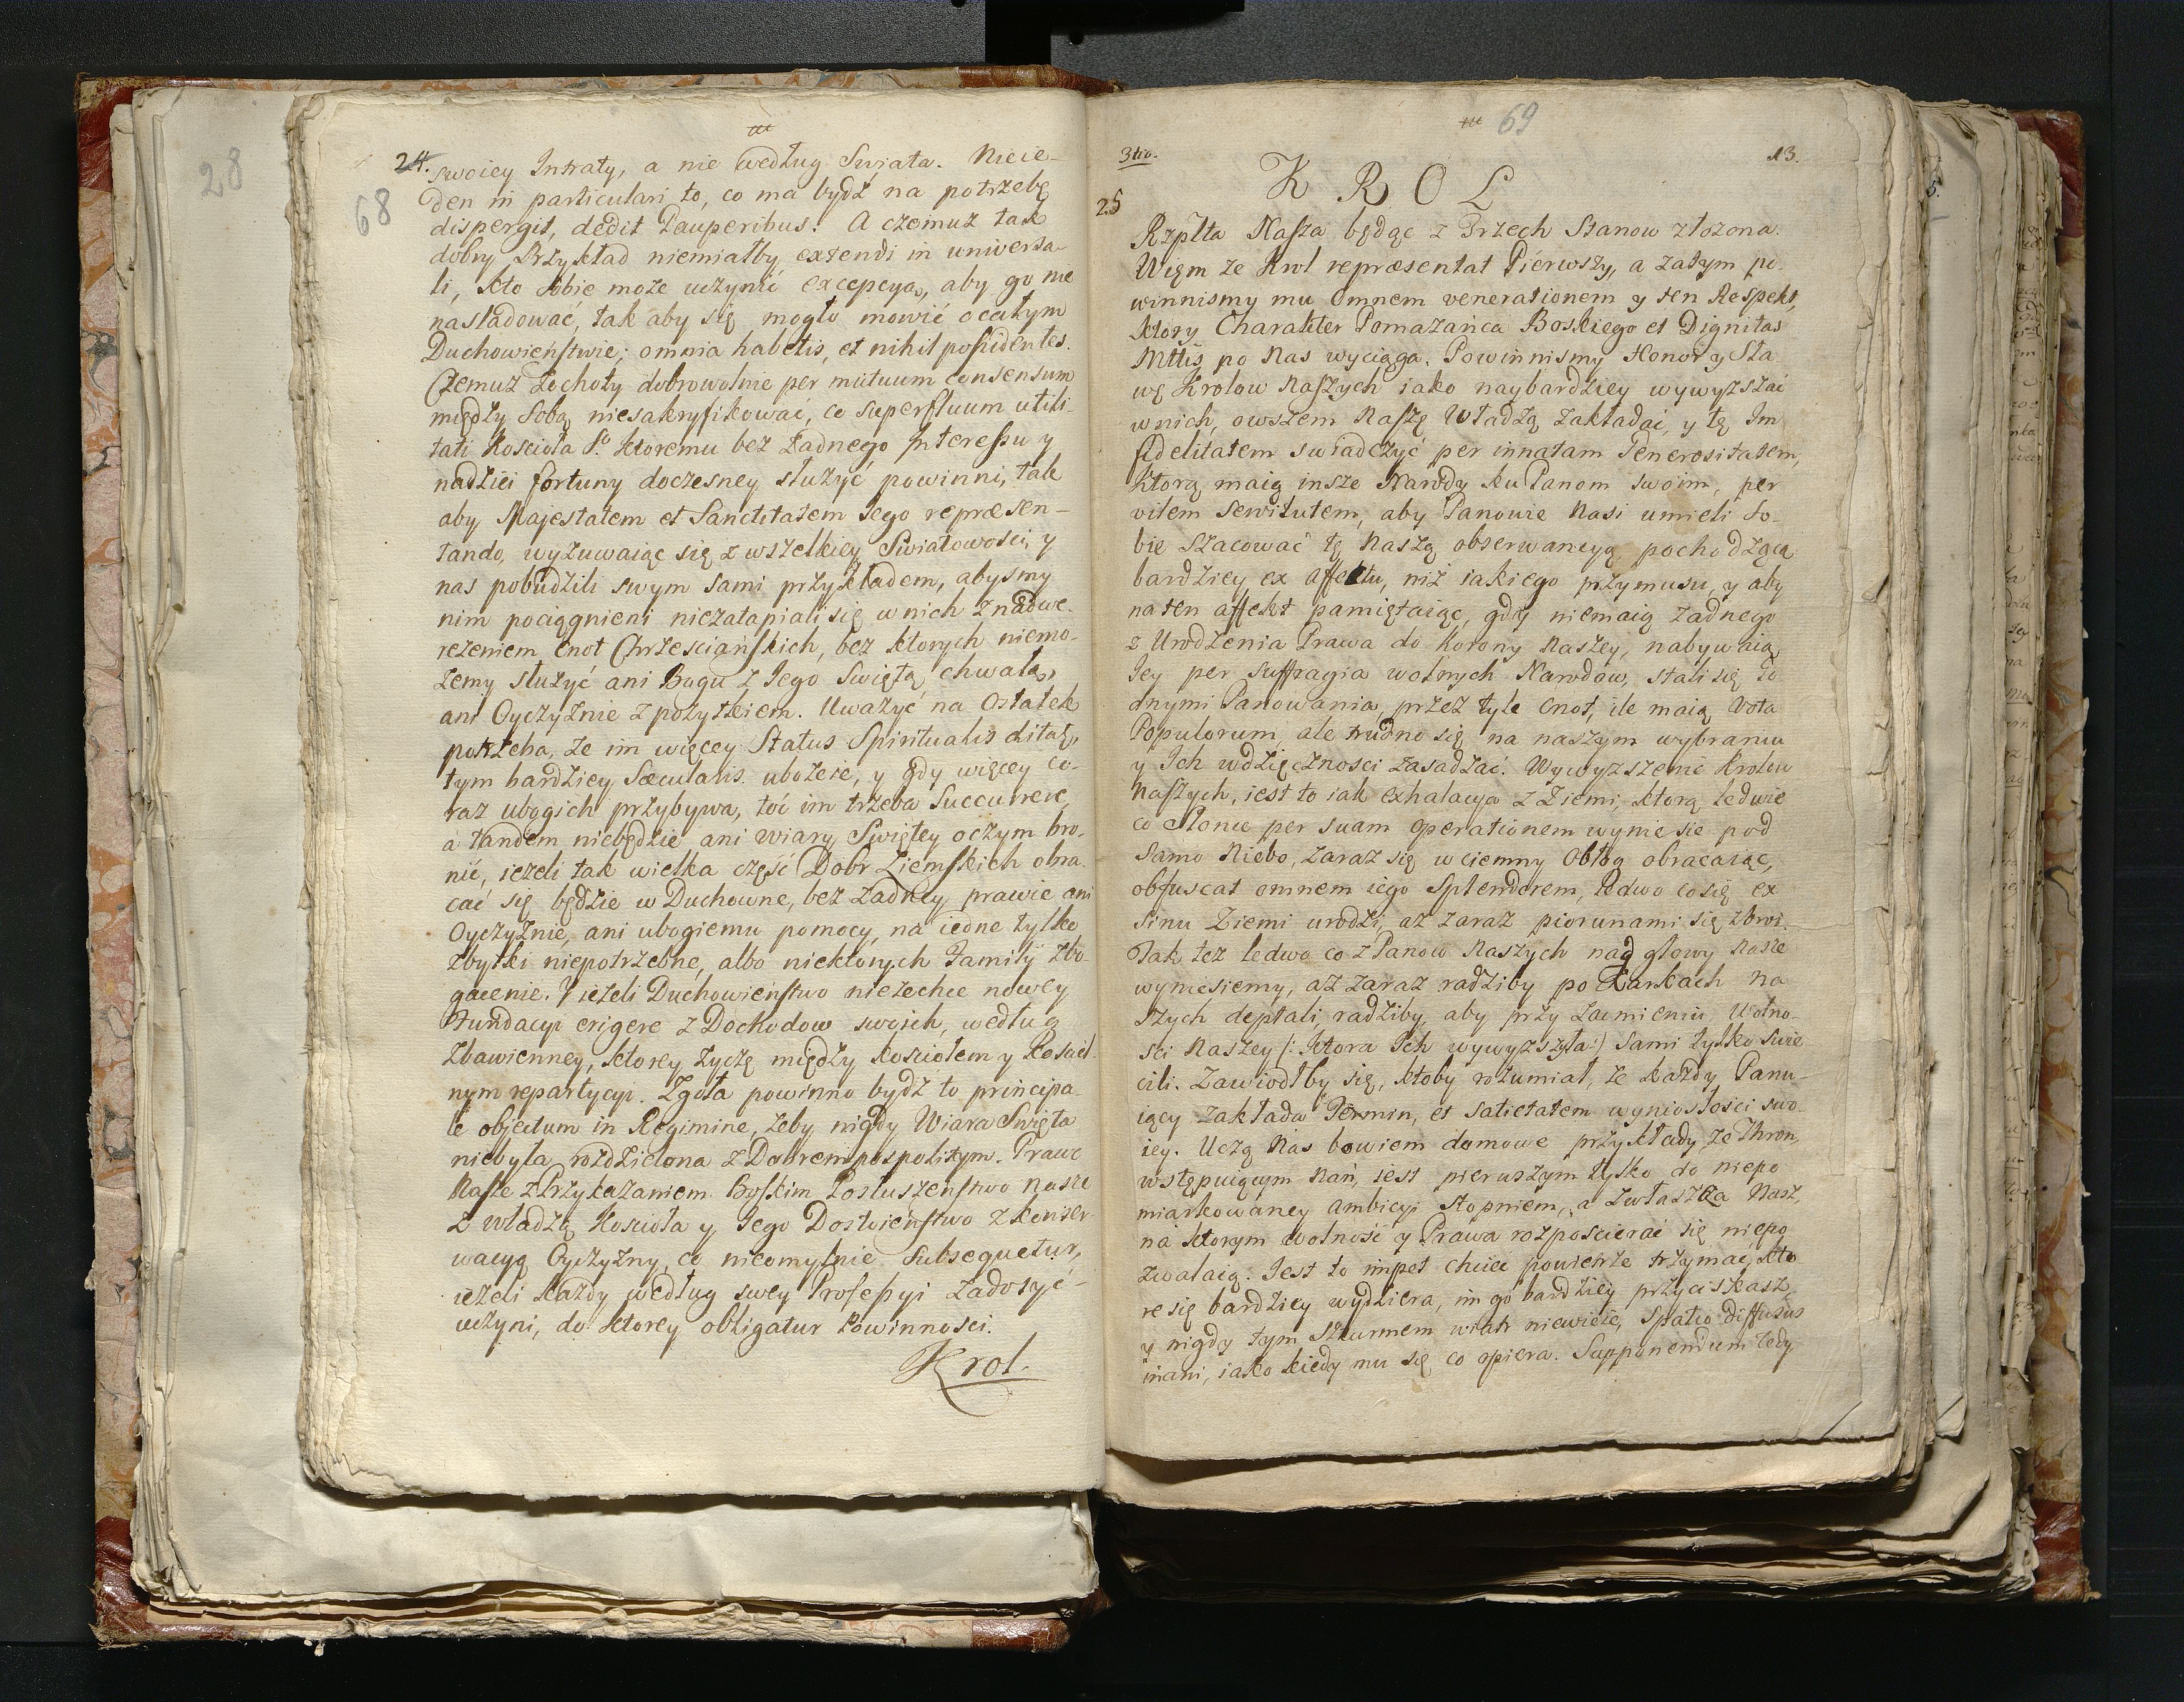 28
68
24. swoiey Intraty, a nie według Swiata. Nieie-
den in particulari to, co ma bydź na potrzebę
dispergit, dedit Pauperibus! A czemuż tak
dobry Przykład niemiałby extendi in universa-
li, kto sobie może uczynić excepcyą, aby go nie
nasladować, tak aby się mogło mowić o całym
Duchowieństwie; omnia habetis, et nihil possidentes.
Czemuż Zochoty dobrowolnie per mutuum consensum
między Sobą niesakryfikować, co superfluum utili-
tati Kościoła So. ktoremu bez żadnego Interessu y
nadziei fortuny doczesney służyć powinni, tak
aby Majestatem et Sanctitatem Jego repræsen-
tando, wyzuwaiąc się z wszelkiey Swiatowości, y
nas pobudzili swym sami przykładem, abysmy
nim pociągnieni niezatapiali się w nich z nadwe-
rężeniem Cnot Chrześciańskich, bez ktorych niemo-
żemy służyć ani Bogu z Jego Swiętą chwałą,
ani Oyczyźnie z pożytkiem. Uważyć na Ostatek
potrzeba, że im więcey Status Spiritualis ditat,
tym bardziey Sæcularis ubożeie, y gdy więcey co-
raz ubogich przybywa, toć im trzeba Succurrere,
á tandem niebędzie ani wiary Swiętey o czym bro-
nić, ieżeli tak wielka część Dobr Ziemskich obra-
cać się będzie w Duchowne, bez żadney prawie ani
Oyczyźnie, ani ubogiemu pomocy, na iedne tylko
Zbytki niepotrzebne, albo niektorych Familij zbo-
gacenie. Y ieżeli Duchowieństwo niezechce nowey
Fundacyi erigere z Dochodow swoich, według
Zbawienney, ktorey życzę między Kościołem y Kościel-
nym repartycyi. Zgoła powinno bydź to principa-
le objectum in Regimine, żeby nigdy Wiara Swięta
niebyła rozdzielona z Dobrem pospolitym. Prawo
Nasze z Przykazaniem Boskim Posłuszeństwo nasze
z władzą Kościoła y Jego Dostoieństwo z konser-
wacyą Oyczyzny, co nieomylnie Subsequetur,
ieżeli każdy według swey Professyi zadosyć-
uczyni, do ktorey obligatur Powinności.
Krol.
69
3tio. 13.
25
KROL
Rzplta Nasza będąc z Trzech Stanow złożona.
Wiem że Krol repræsentat Pierwszy, a zatym po-
winnismy mu omnem venerationem y ten Respekt,
ktory Charakter Pomazańca Boskiego et Dignitas
Mttis po Nas wyciąga. Powinnismy Honor y Sła
wę Krolow Naszych iako naybardziey wywyższać
w nich, owszem Naszę Władzą zakładać, y tę Im
fidelitatem swiadczyć per innatam Generositatem,
ktorą maią insze Narody ku Panom swoim, per
vilem Servitutem, aby Panowie Nasi umieli So-
bie szacować tę Naszą obserwancyą pochodzącą
bardziey ex affektu, niż iakiego przymusu, y aby
na ten affekt pamiętaiąc, gdy niemaią żadnego
z Urodzenia Prawa do Korony Naszey, nabywaią
Jey per suffragia wolnych Narodow, stali się Go
dnymi Panowania, przez tyle Cnot, ile maią vota
Populorum, ale trudno się na naszym wybraniu
y Ich wdzięczności zasadzać. Wywyższenie Krolow
Naszych, iest to iak exhalacya z Ziemi, ktorą ledwie
co Słonce per suam operationem wyniesie pod
Samo Niebo, zaraz się w ciemny Obłog obracaiąc,
obfuscat omnem iego Splendorem, ledwo co się ex
Sinu Ziemi urodzi, aż zaraz piorunami się zbroi.
Tak też ledwo co z Panow Naszych nad głowy Nasze
wyniesiemy, aż zaraz radziby po Karkach na
szych deptali radziby, aby przy zacmieniu Wolno-
sci Naszey (: ktora Ich wywyższyła :) sami tylko swie
cili. Zawiodłby się, ktoby rozumiał, że każdy Panu-
iący zakłada Termin, et satietatem wyniosłości swo-
iey. Uczą Nas bowiem domowe przykłady że Thron,
wstępuiącym Nań, iest pierwszym tylko do niepo
miarkowaney ambicyi stopniem, a zwłaszcza Nasz,
na ktorym wolność y Prawa rozpościerać się niepo
zwalaią. Jest to impet chcieć powietrze trzymać, kto
re się bardziey wydziera, im go bardziey przyciskasz
y nigdy tym Szturmem wiatr niewieie, Spatio diffusus
inani, iako kiedy mu się co opiera. Supponendum tedy